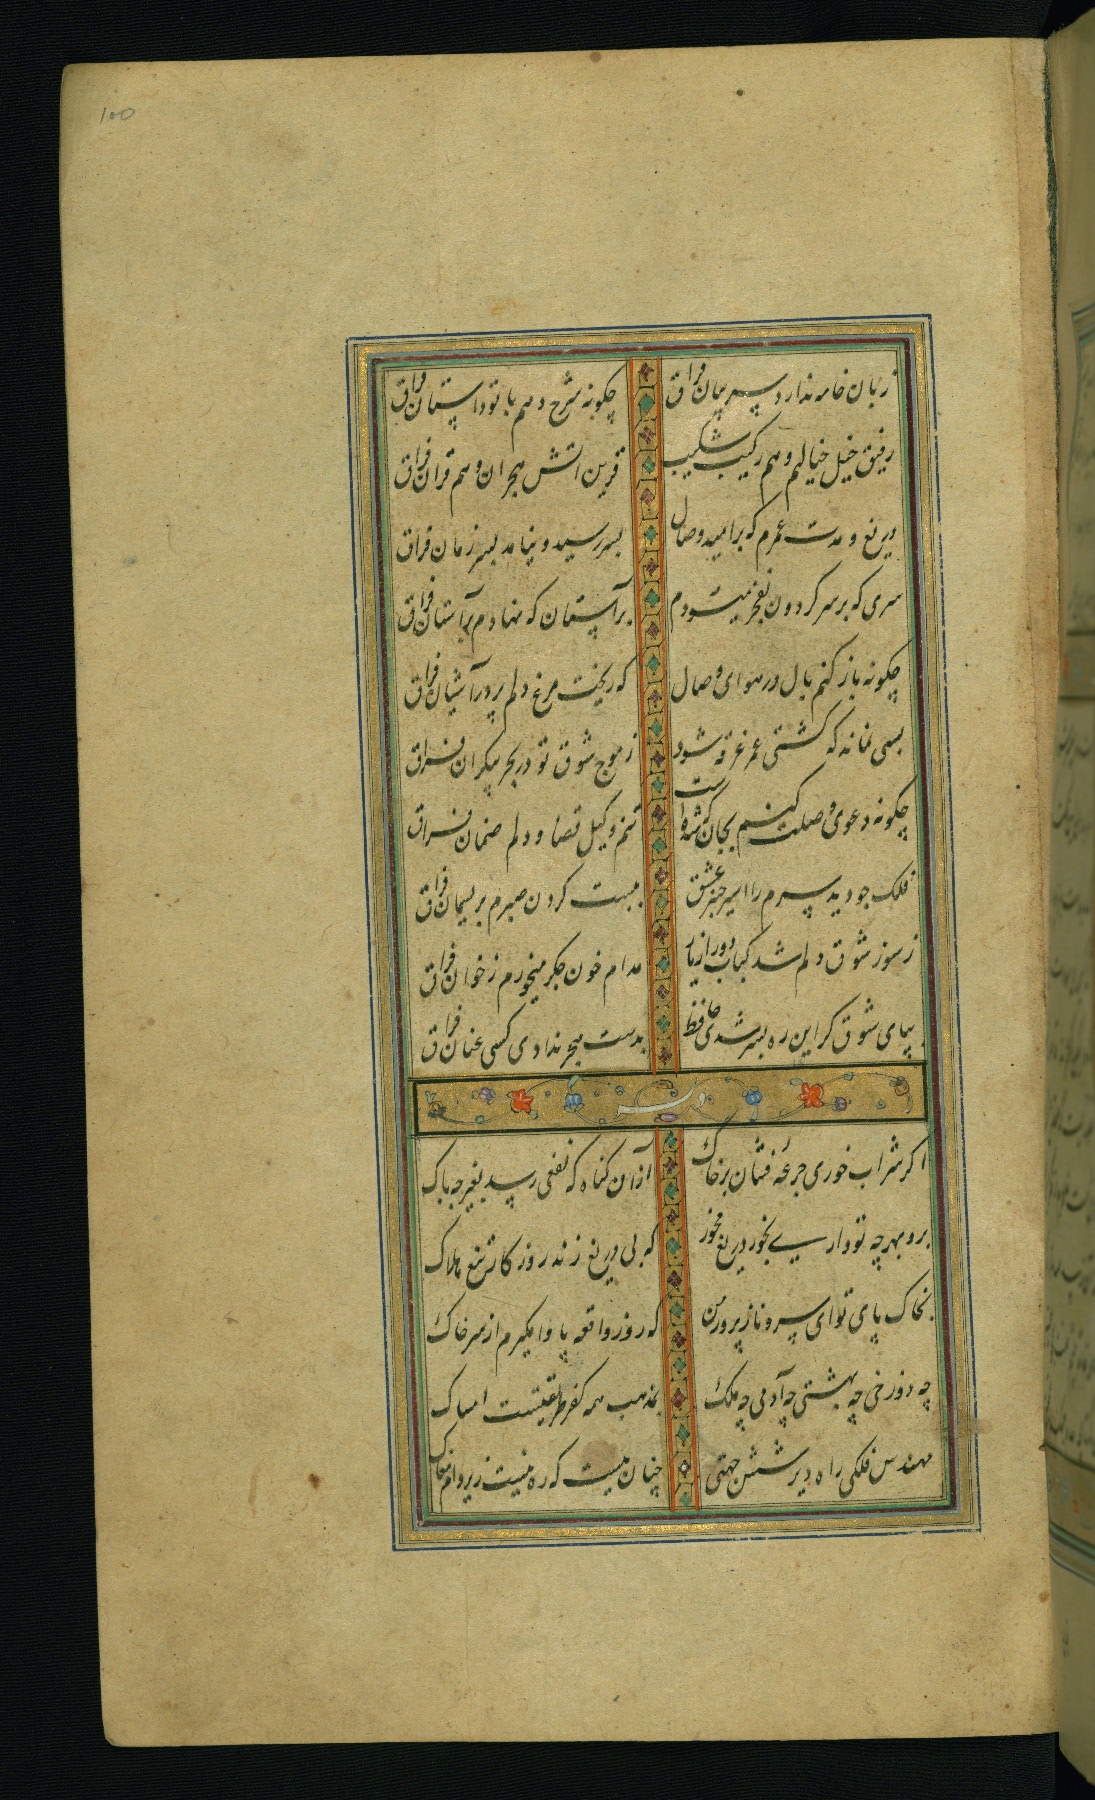 100
زبان خامه ندارد سر بیان فراق چکونه شرح دهم با تو داستان فراق
رفیق خیل خیالیم و هم رکیب شکیب قرین اتش هجران و هم قران فراق
دریغ و مدت عمرم که بر امید وصال بسر رسید و نیامد بسر زمان فراق
سری که بر سر کردون بفخر میسودم بر آستان که نهادم بر آستان فراق
چکونه باز کنم بال در هوای وصال که ریخت مرغ دلم پر در آشیان فراق
بسی نمانه که کشتی عمر غرقه شود ز موج شوق تو در بحر بیکران فراق
چکونه دعوی وصلت کنم بجان که شدست تنم وکیل قضا و دلم ضمان فراق
فلک چو دید سرم را اسیر چنبر عشق ببست کردن صبرم بریسمان فراق
ز سوز شوق دلم شد کباب دور از یار مدام خون جکر میخورم ز خوان فراق
بپای شوق کر این ره بسر شدی حافظ بدست هجر ندادی کسی عنان فراق
اکر شراب خوری جرعهٔ فشان بر خاک از آن کناه که نفعی رسد بغیر چه باک
برو بهرچه تو داری بخور دریغ مخور که بی دریغ زند روزکار تیغ هلاک
بخاک پای تو ای سرو ناز پرور من که روز واقعه پا وا مکیرم از سر خاک
چه دوزخی چه بهشتی چه آدمی چه ملک بمذهب همه کفر طریقتست امساک
مهندس فلکی راه دیر شش جهتی چنان ببست که ره نیست زیر دام مغاک